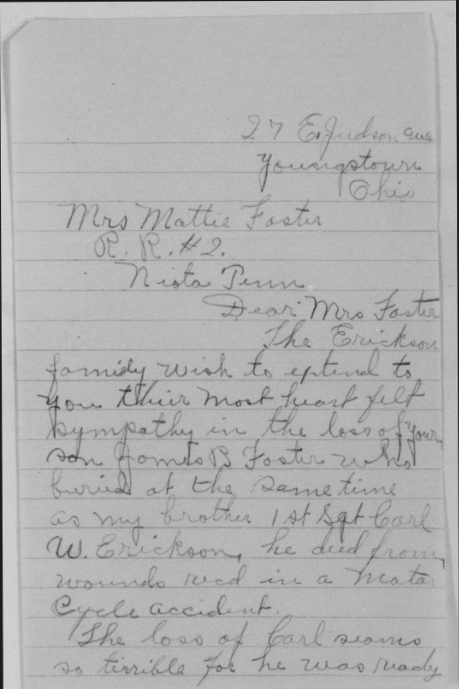 27 E. Judson ave
Youngstown
Ohio
Mrs Mattie Foster
R. R. #2.
Niota Tenn
Dear Mrs Foster
The Erickson
family wish to extend to
you their most heart felt
sympathy in the loss of your
son James B Foster who
buried at the same time
as my brother 1st Sgt Carl
W. Erickson, he died from
wounds recd in a Motor
Cycle accident.
The loss of Carl seams
so terrible for he was ready